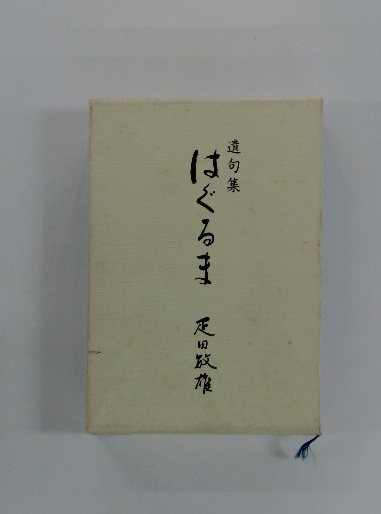 遺句集
はぐるま
疋田敏雄